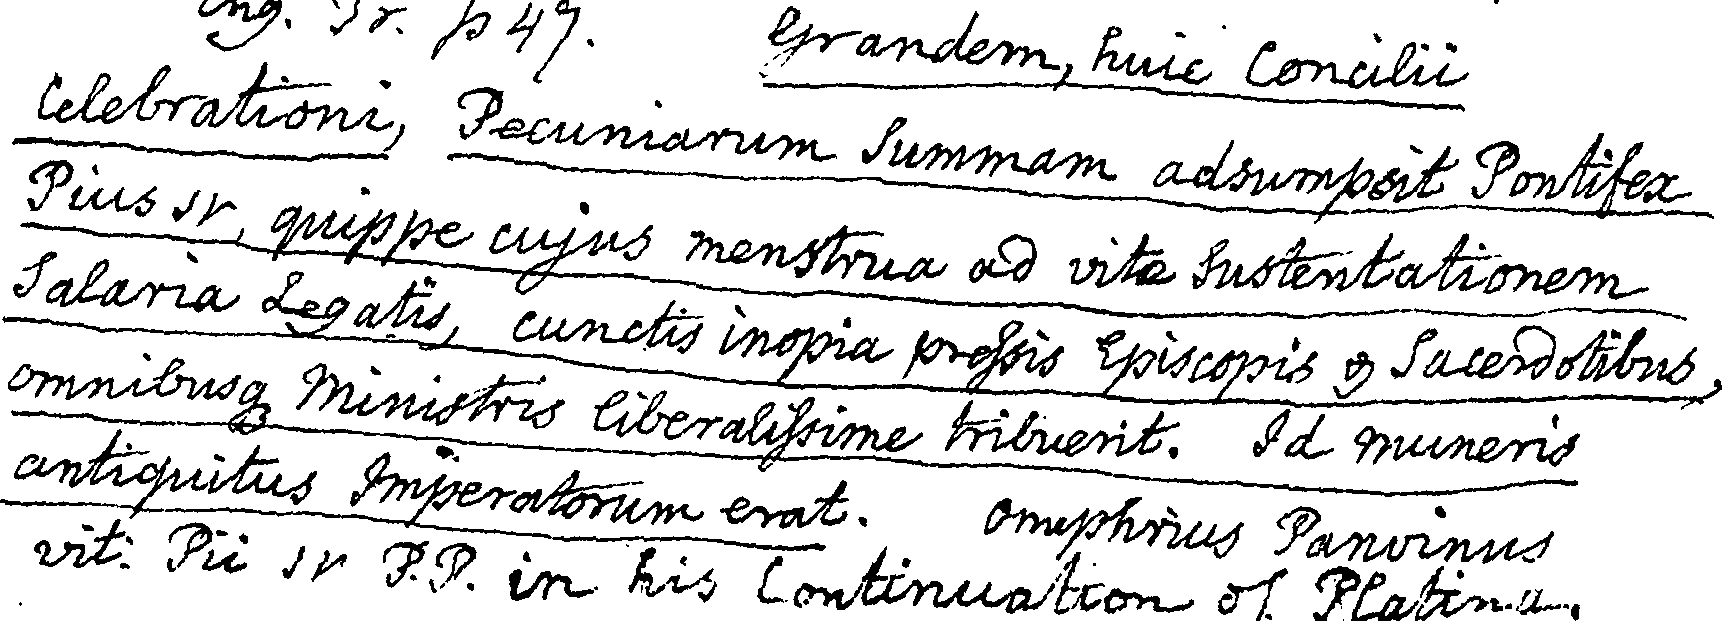 Eng. Tr. p 47. Grandem, huic Concilii
Celebrationi, Pecuniarum Summam adsumpsit Pontifex
Pius IV, quippe cujus menstrua ad vitæ Sustentationem
Salaria Legatis, cunctis inopia preſsis Episcopis & Sacerdotibus,
omnibusq Ministris liberaliſsime tribuerit. Id muneris
antiquitus Imperatorum erat. Onuphrius Panvinus
vit: Pii IV P.P. in his Continuation of Platina.